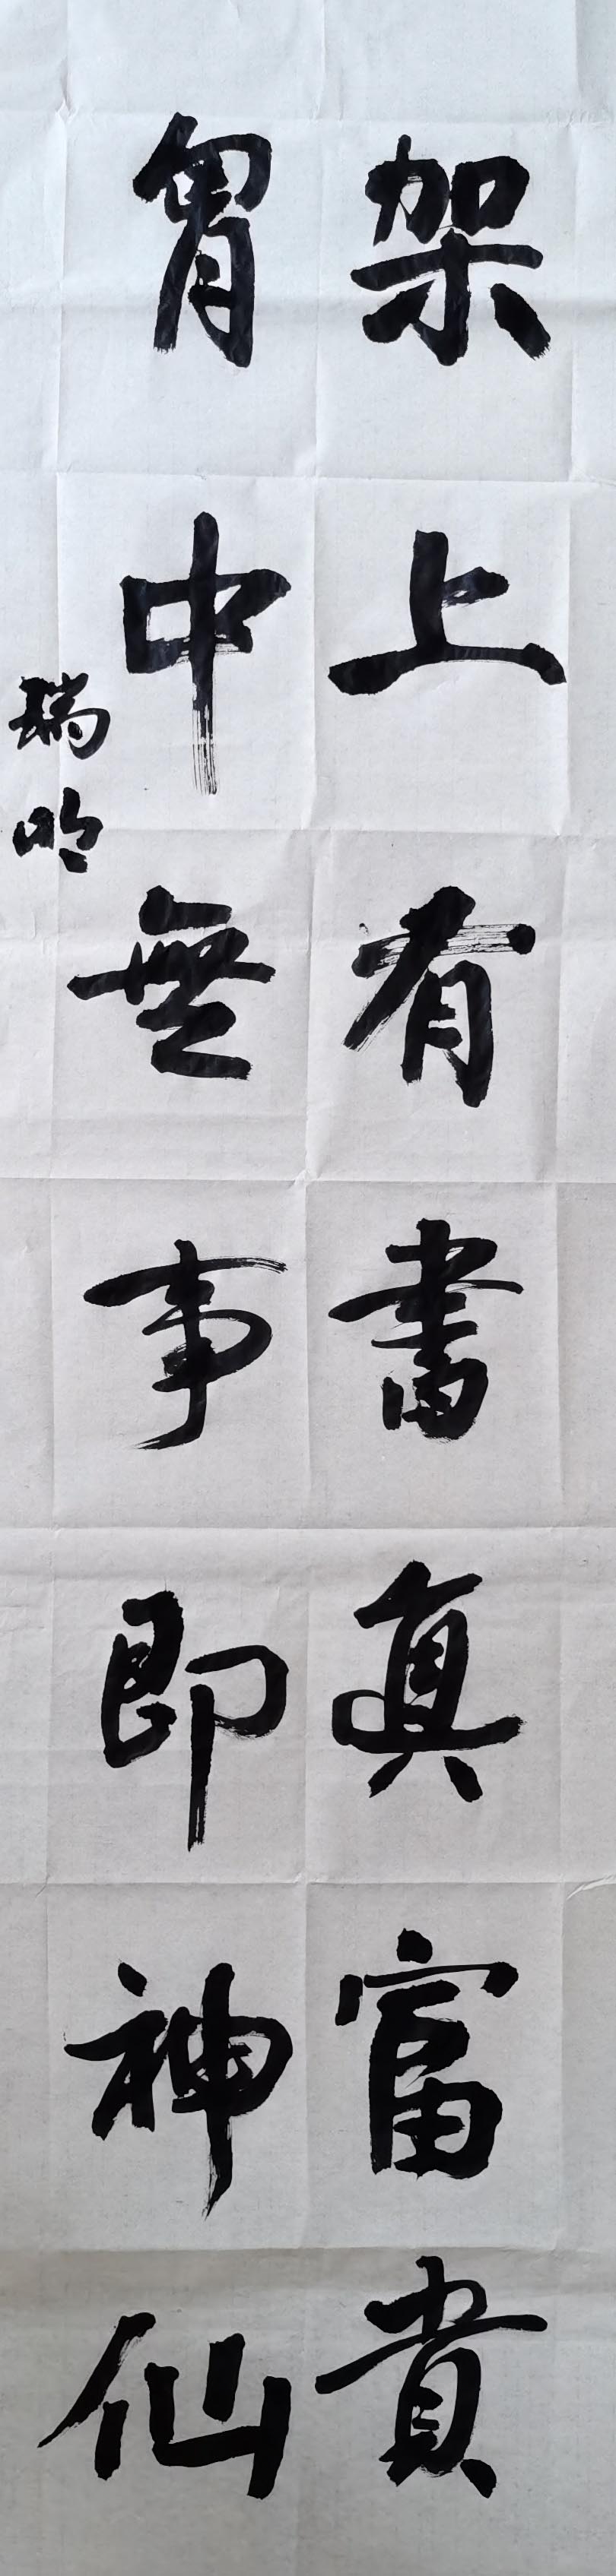 架上有書真富貴
胷中無事即神仙
瑞明